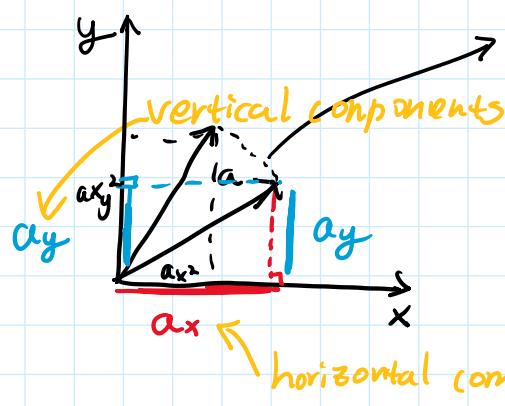 y
vertical conponents
a
ay
ay
x
ax
horizontal com